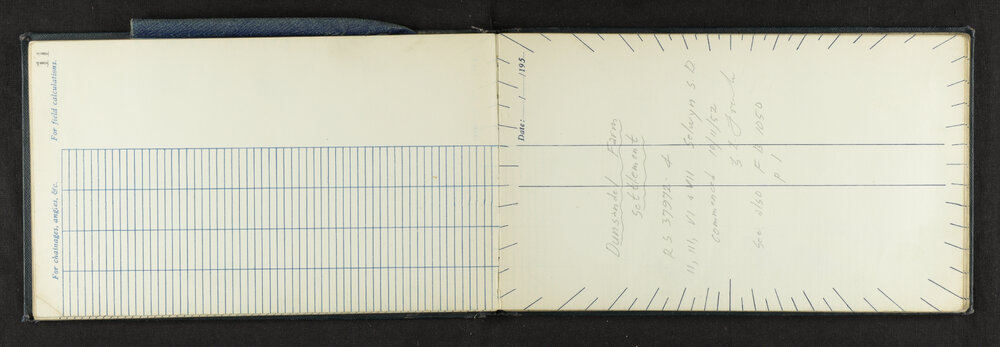 11
For field calculations.
For chainages, angles, &c.
Date: / /195
Dunsandel Farm
Settlement
RS 37972 &
II, III, VI & VII Selwyn S.D.
commenced 19/11/52
See also F B 1050
p 1